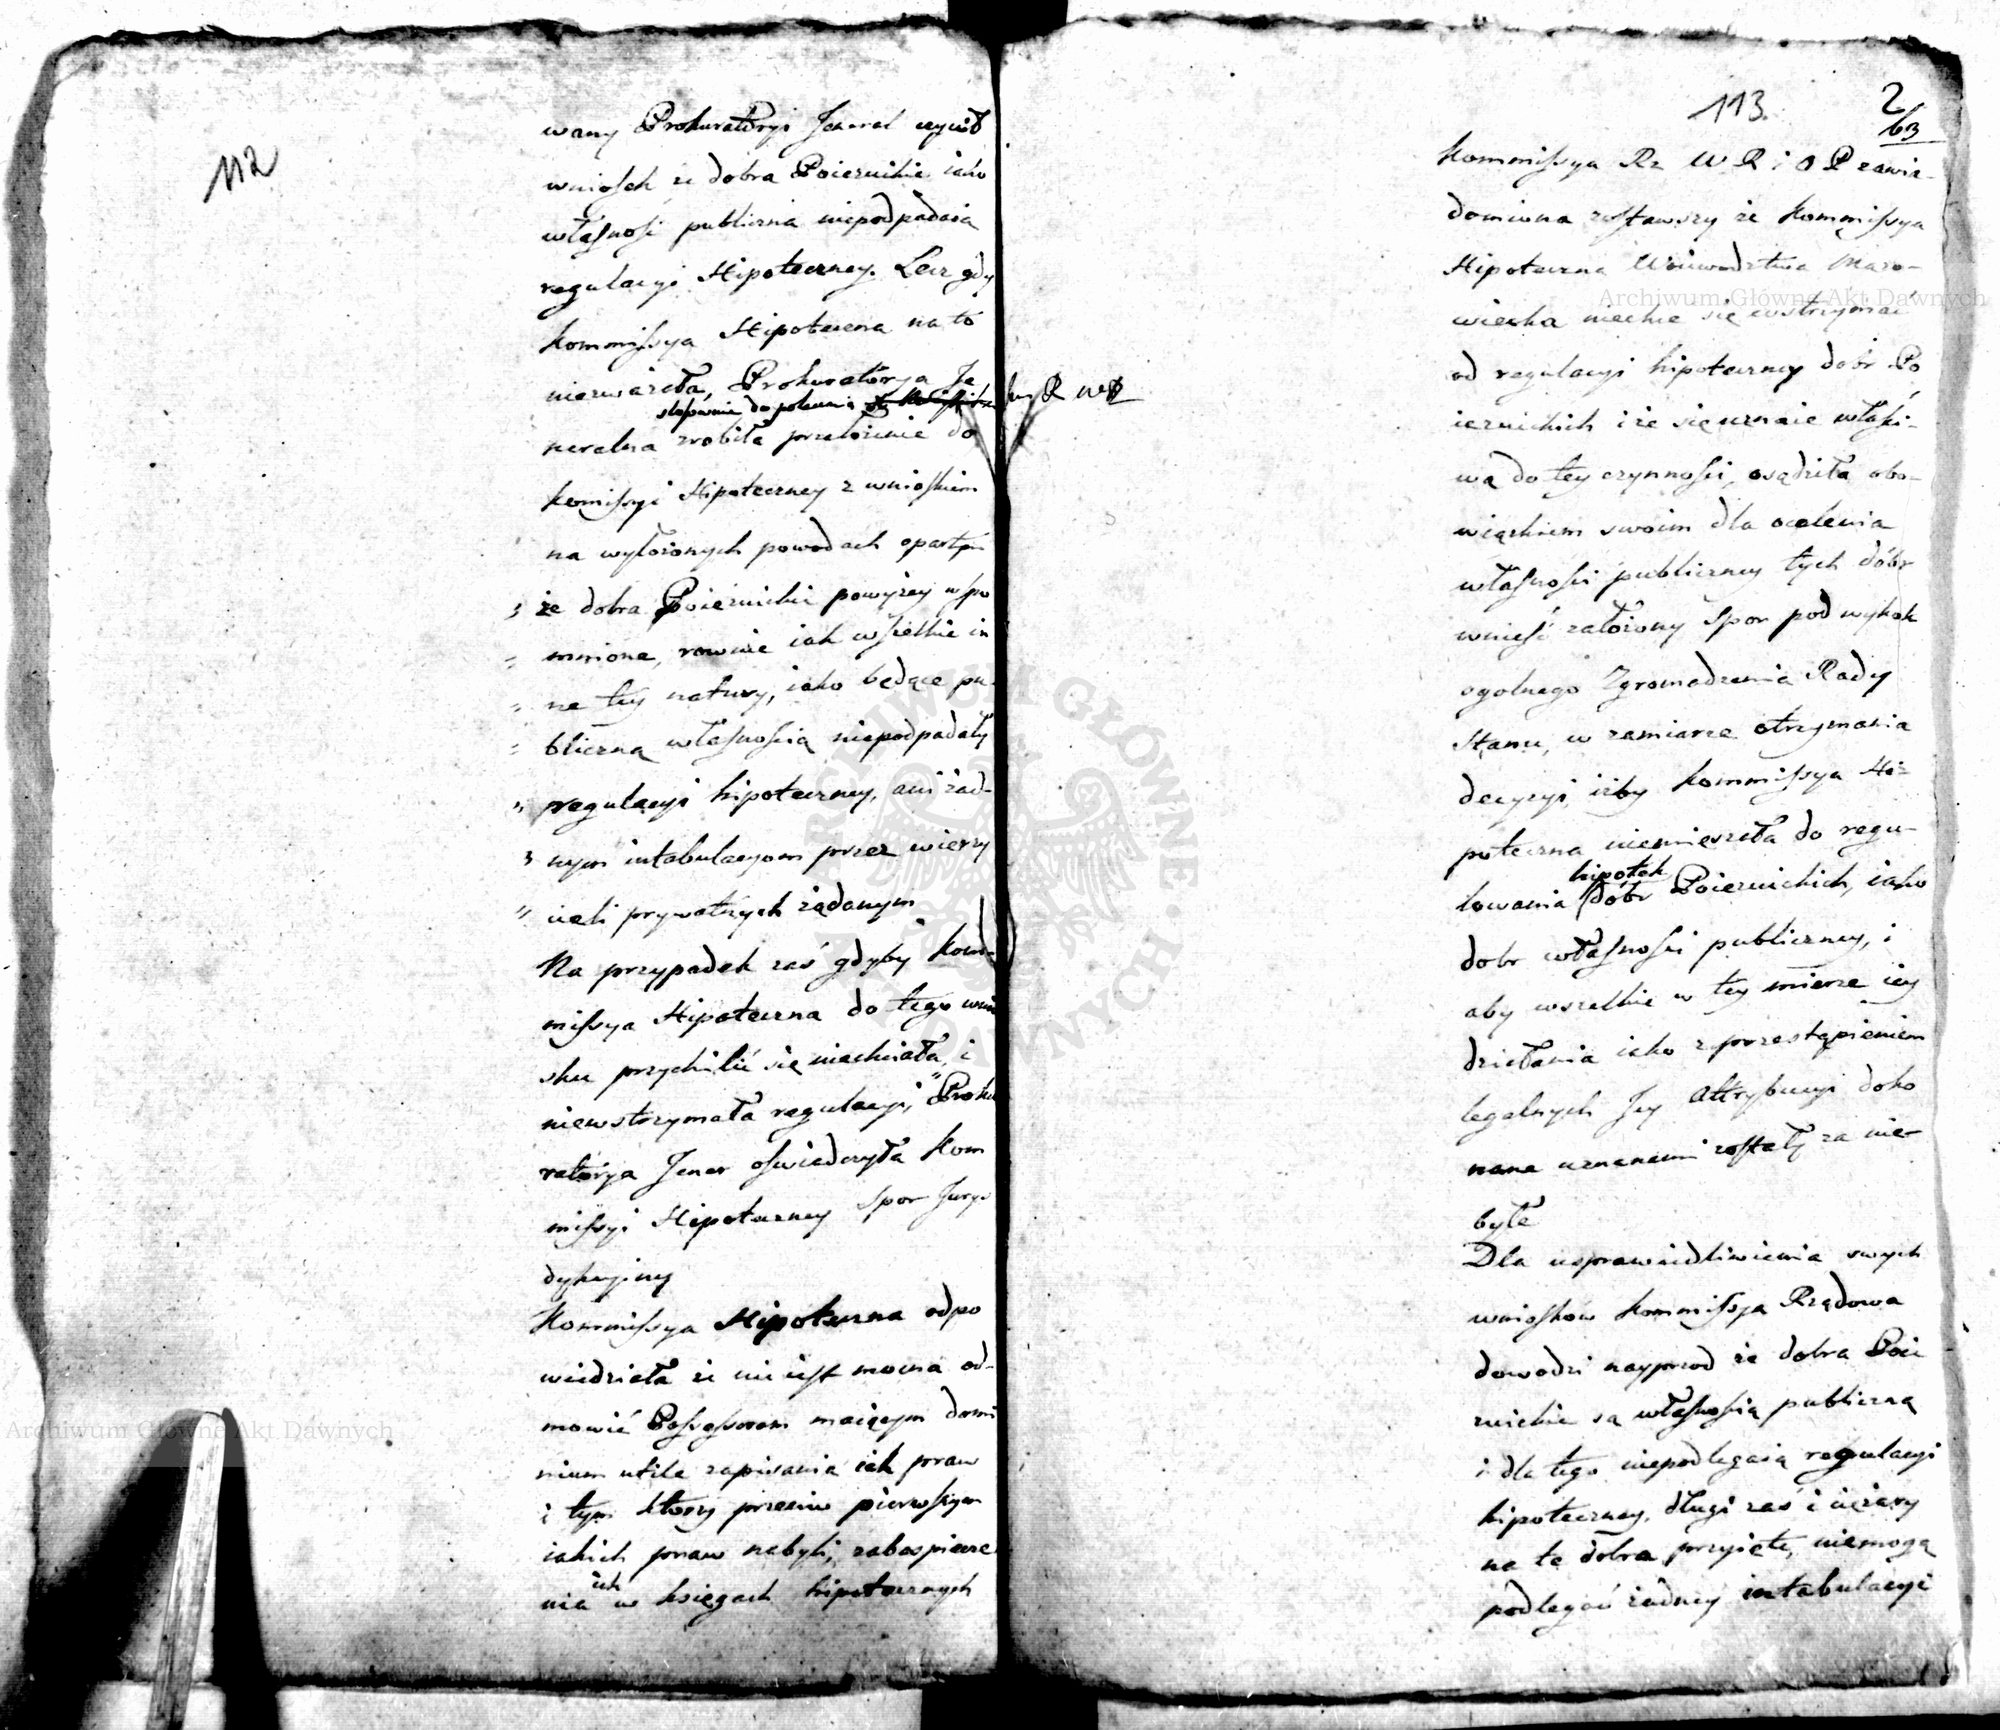 112
wany Prokuratoryi Jeneral uczynił
wniosek że dobra Poiezuickie iako
własność publiczna niepodpadaią
regulacyi Hipoteczney. Lecz gdy
Kommissya Hipoteczna na to
niezważała, Prokuratorya Je
stosownie do polecenia
neralna zrobiła przełożenie do
Komissyi Hipoteczney z wnioskiem
na wyłożonych powodach opartym
„ że dobra Poiezuickie powyżey wspo
„ mnione, rownie iak wszelkie in
„ ne tey natury, iako będące pu-
„ bliczną własnością niepodpadały
„ regulacyi hipoteczney, ani żad-
„ nym intabulacyom przez wierzy
„ cieli prywatnych żądanym
Na przypadek zaś gdyby Kom-
missya Hipoteczna do tego wnio
sku przychilić się niechciała, i
niewstrzymała regulacyi, Proku
ratorya Jener oświadczyła Kom
missyi Hipoteczney Spor Jurys
dykcyiny
Kommissya Hipoteczna odpo
wiedziała że nie iest mocna od-
mowić Possessorom maiącym domi
nium utile zapisania ich praw
i tym ktorzy przeciw pierwszym
iakich praw nabyli, zabespiecze
ich
nia w księgach hipotecznych
113.
2
63
Kommissya Rz W R i O P zawia-
domiona zostawszy że Kommissya
Hipoteczna Woiewodztwa Mazo-
wiecka niechce się wstrzymać
od regulacyi hipoteczney dobr Po
iezuickich i że się uznaie właści-
wą do tey czynności, osądziła obo-
wiązkiem swoim dla ocalenia
własności publiczney tych dóbr
wnieść założony Spor pod wyrok
ogolnego Zgromadzenia Rady
Stanu, w zamiarze otrzymania
decyzyi, iżby Kommissya Hi-
poteczna niemieszała do regu-
hipotek
lowania dóbr Poiezuickich, iako
dobr własności publiczney, i
aby wszelkie w tey mierze iey
działania iako z przestąpieniem
legalnych Jey Attrybucyi doko
nane uznanemi zostały za nie-
byłe
Dla usprawiedliwienia swych
wniosków Kommissya Rządowa
dowodzi nayprzod że dobra Poie
zuickie są własnością publiczną
i dla tego niepodlegaią regulacyi
hipoteczney, długi zaś i ciężary
na te dobra przyięte, niemogą
podlegać żadney intabulacyi
Archiwum Główne Akt Dawnych
Archiwum Główne Akt Dawnych
ARCHIWUM GŁÓWNE AKT DAWNYCH